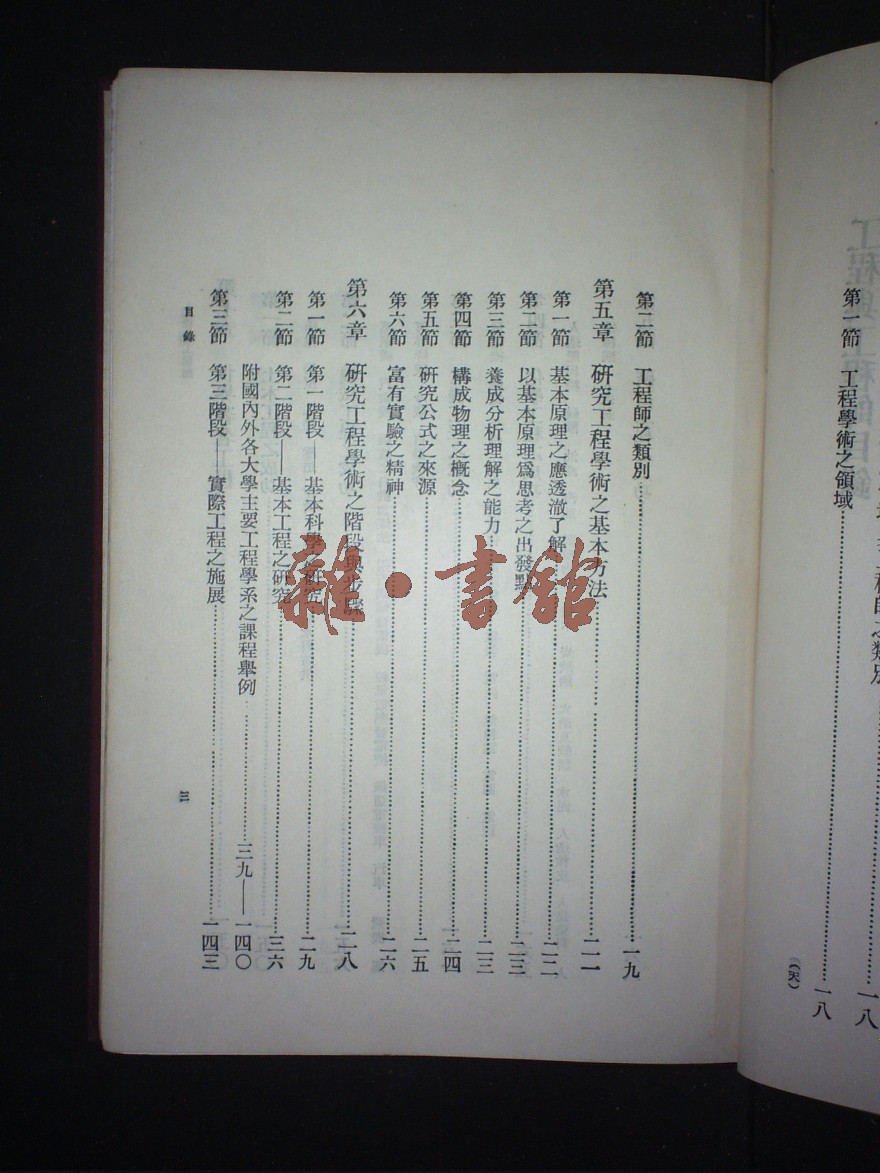 程師之類別……一八
第一節 工程學術之領域……一八
第二節 工程師之類別……一九
第五章 研究工程學術之基本方法……二一
第一節 基本原理之應透澈了解……二二
第二節 以基本原理爲思考之出發點……二三
第三節 養成分析理解之能力……二三
第四節 構成物理之槪念……二四
第五節 研究公式之來源……二五
第六節 富有實驗之精神……二六
第六章 研究工程學術之階段與步驟……二八
第一節 第一階段——基本科學之研究……二九
第二節 第二階段——基本工程之研究……三六
附國內外各大學主要工程學系之課程舉例……三九——一四〇
第三節 第三階段——實際工程之施展……一四三
目錄 三
雜·書館